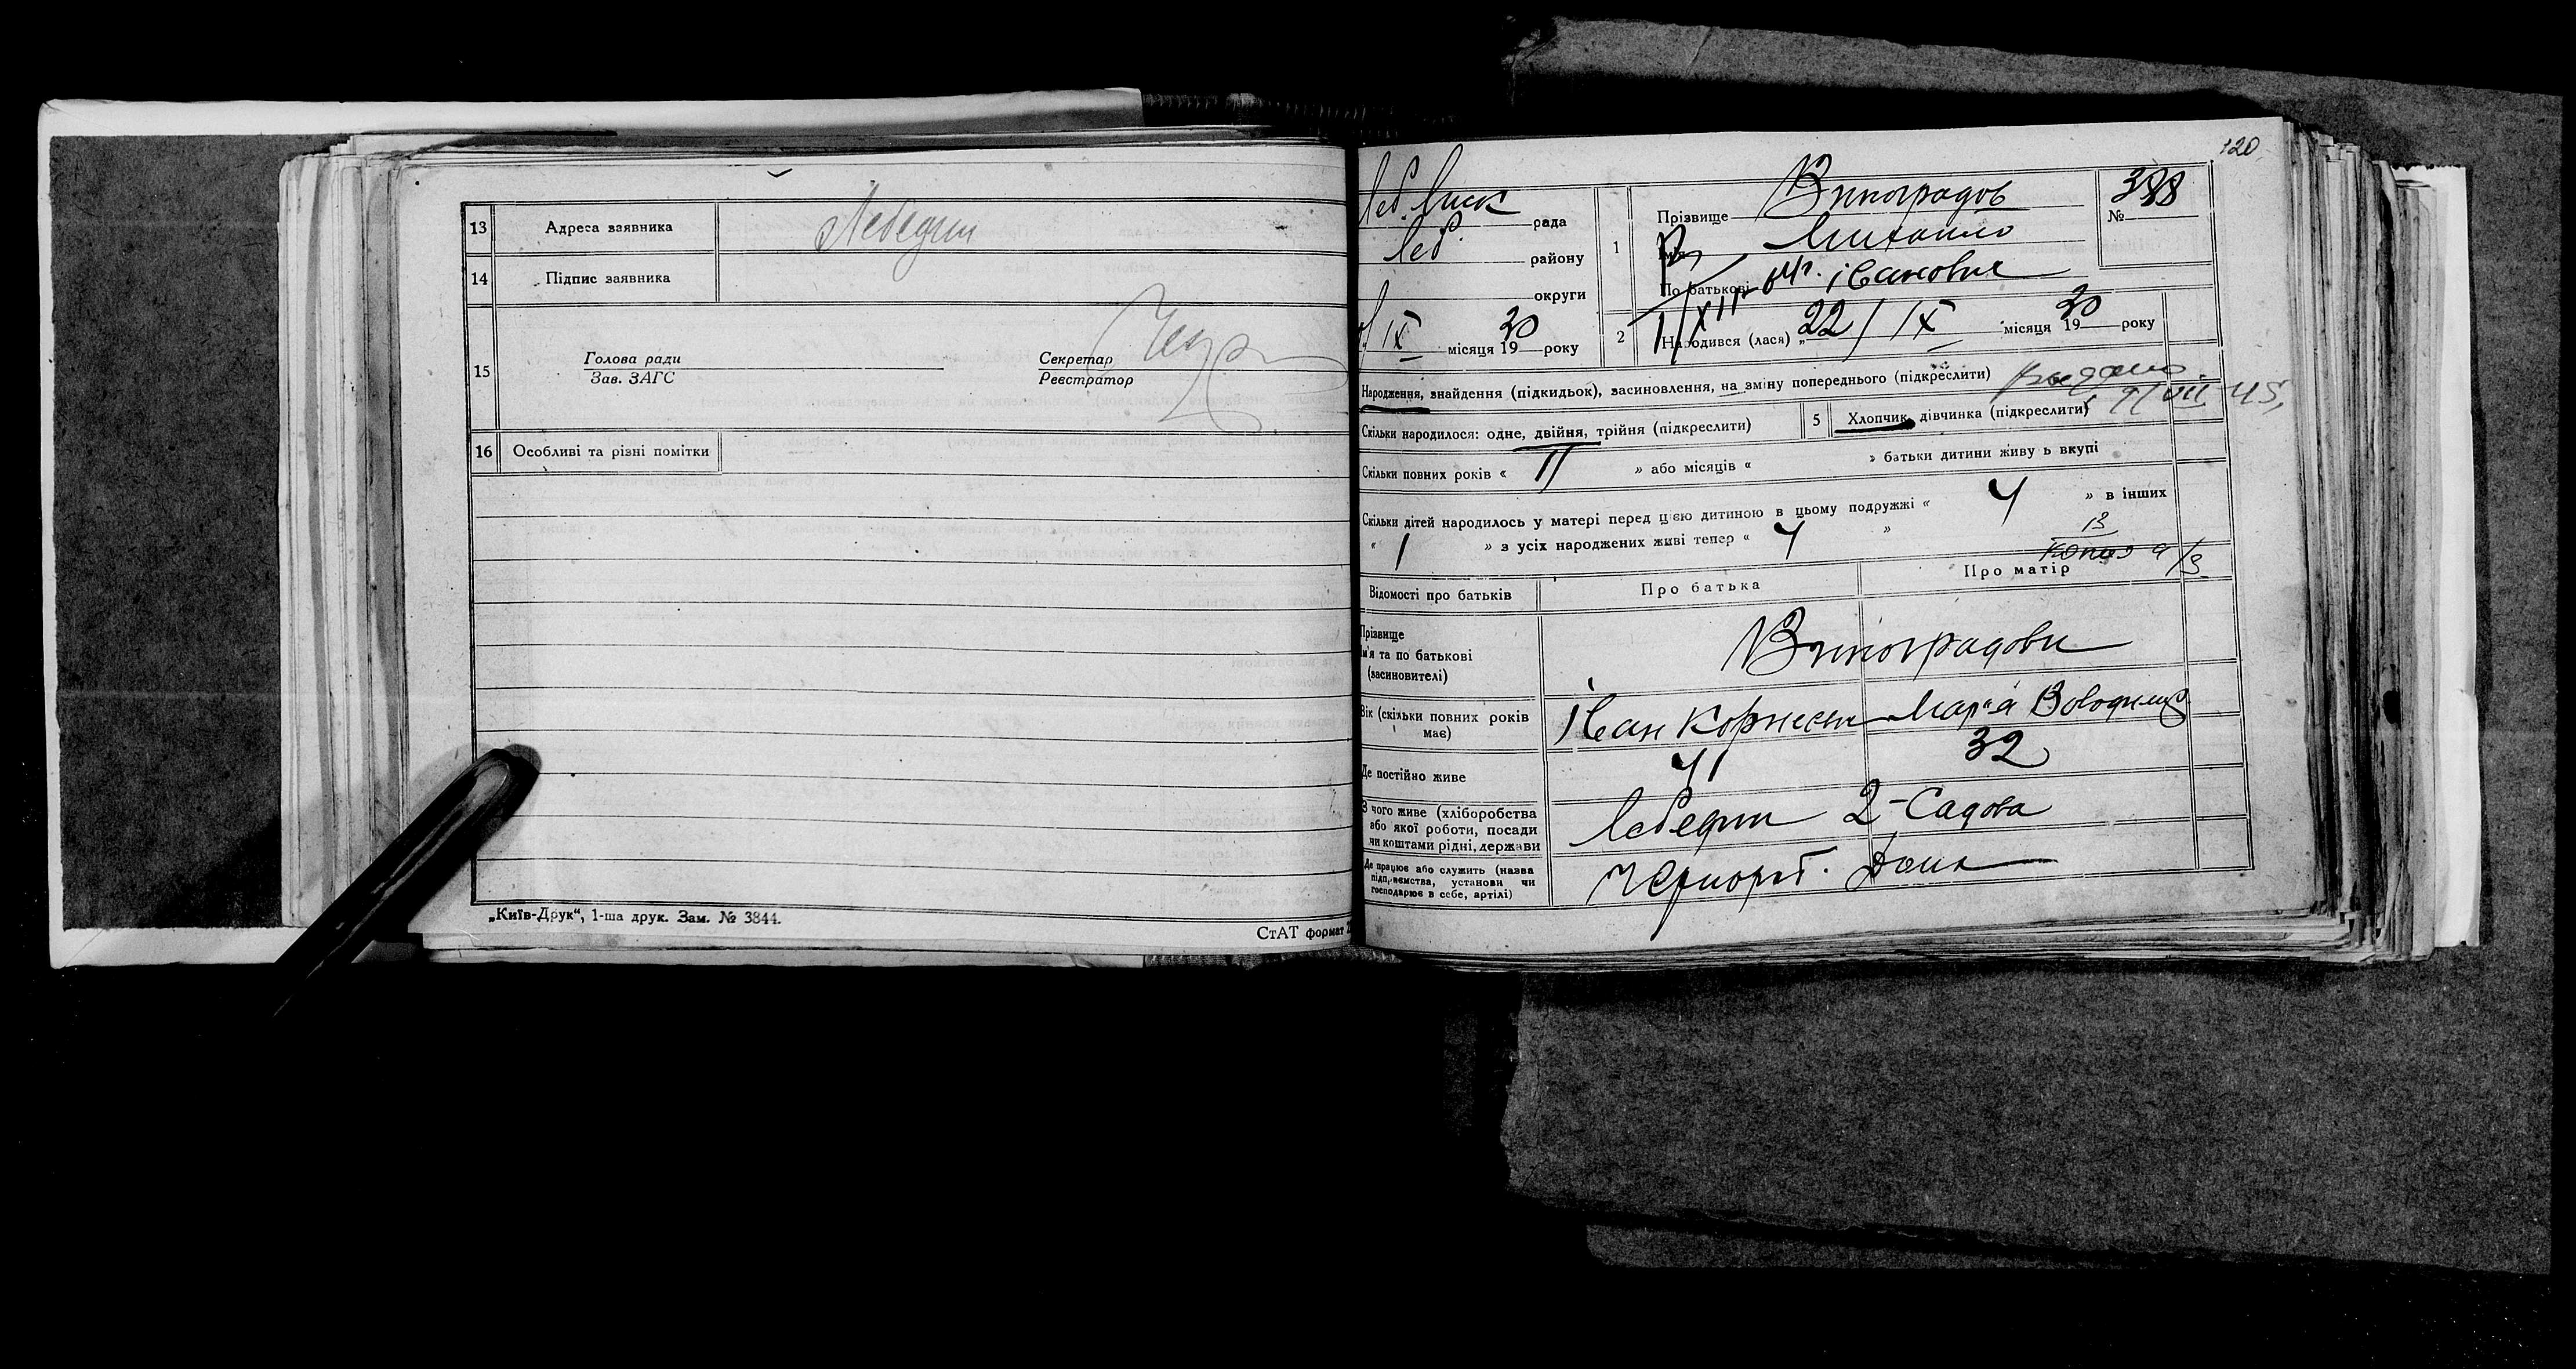 13 Адреса заявника Лебедин
14 Підпис заявника
15 Голова ради Секретар
Зав. ЗАГС Реєстратор
16 Особливі та різні помітки
„Київ-Друк“, 1-ша друк. Зам. № 3844.
СтАТ формат
120
Леб. рада
Леб. району
округи
IX місяця 1930 року
1 Прізвище Виноградов
Ім'я Михайло
По батькові Іванович
№ 388
2 Народився (лася) „22/IX місяця 1930 року
1/XII
Народження, знайдення (підкидьок), засиновлення, на зміну попереднього (підкреслити)
VII 45,
Скільки народилося: одне, двійня, трійня (підкреслити) 5 Хлопчик, дівчинка (підкреслити)
Скільки повних років « 11 » або місяців « » батьки дитини живуть вкупі
Скільки дітей народилось у матері перед цією дитиною в цьому подружжі « 4 » в інших
« 1 » з усіх народжених живі тепер « 4 »
копия 9/3
Відомості про батьків Про батька Про матір
Прізвище
Ім'я та по батькові
(засиновителі)
Виноградови
Вік (скільки повних років
має)
Іван Корнеев Мар'я Володимир
Де постійно живе 41 32
З чого живе (хліборобства
або якої роботи, посади
чи коштами рідні, держави
Лебедин 2-Садова
Де працює або служить (назва
підприємства, установи чи
господарює в себе, артілі)
Чернороб. Дома